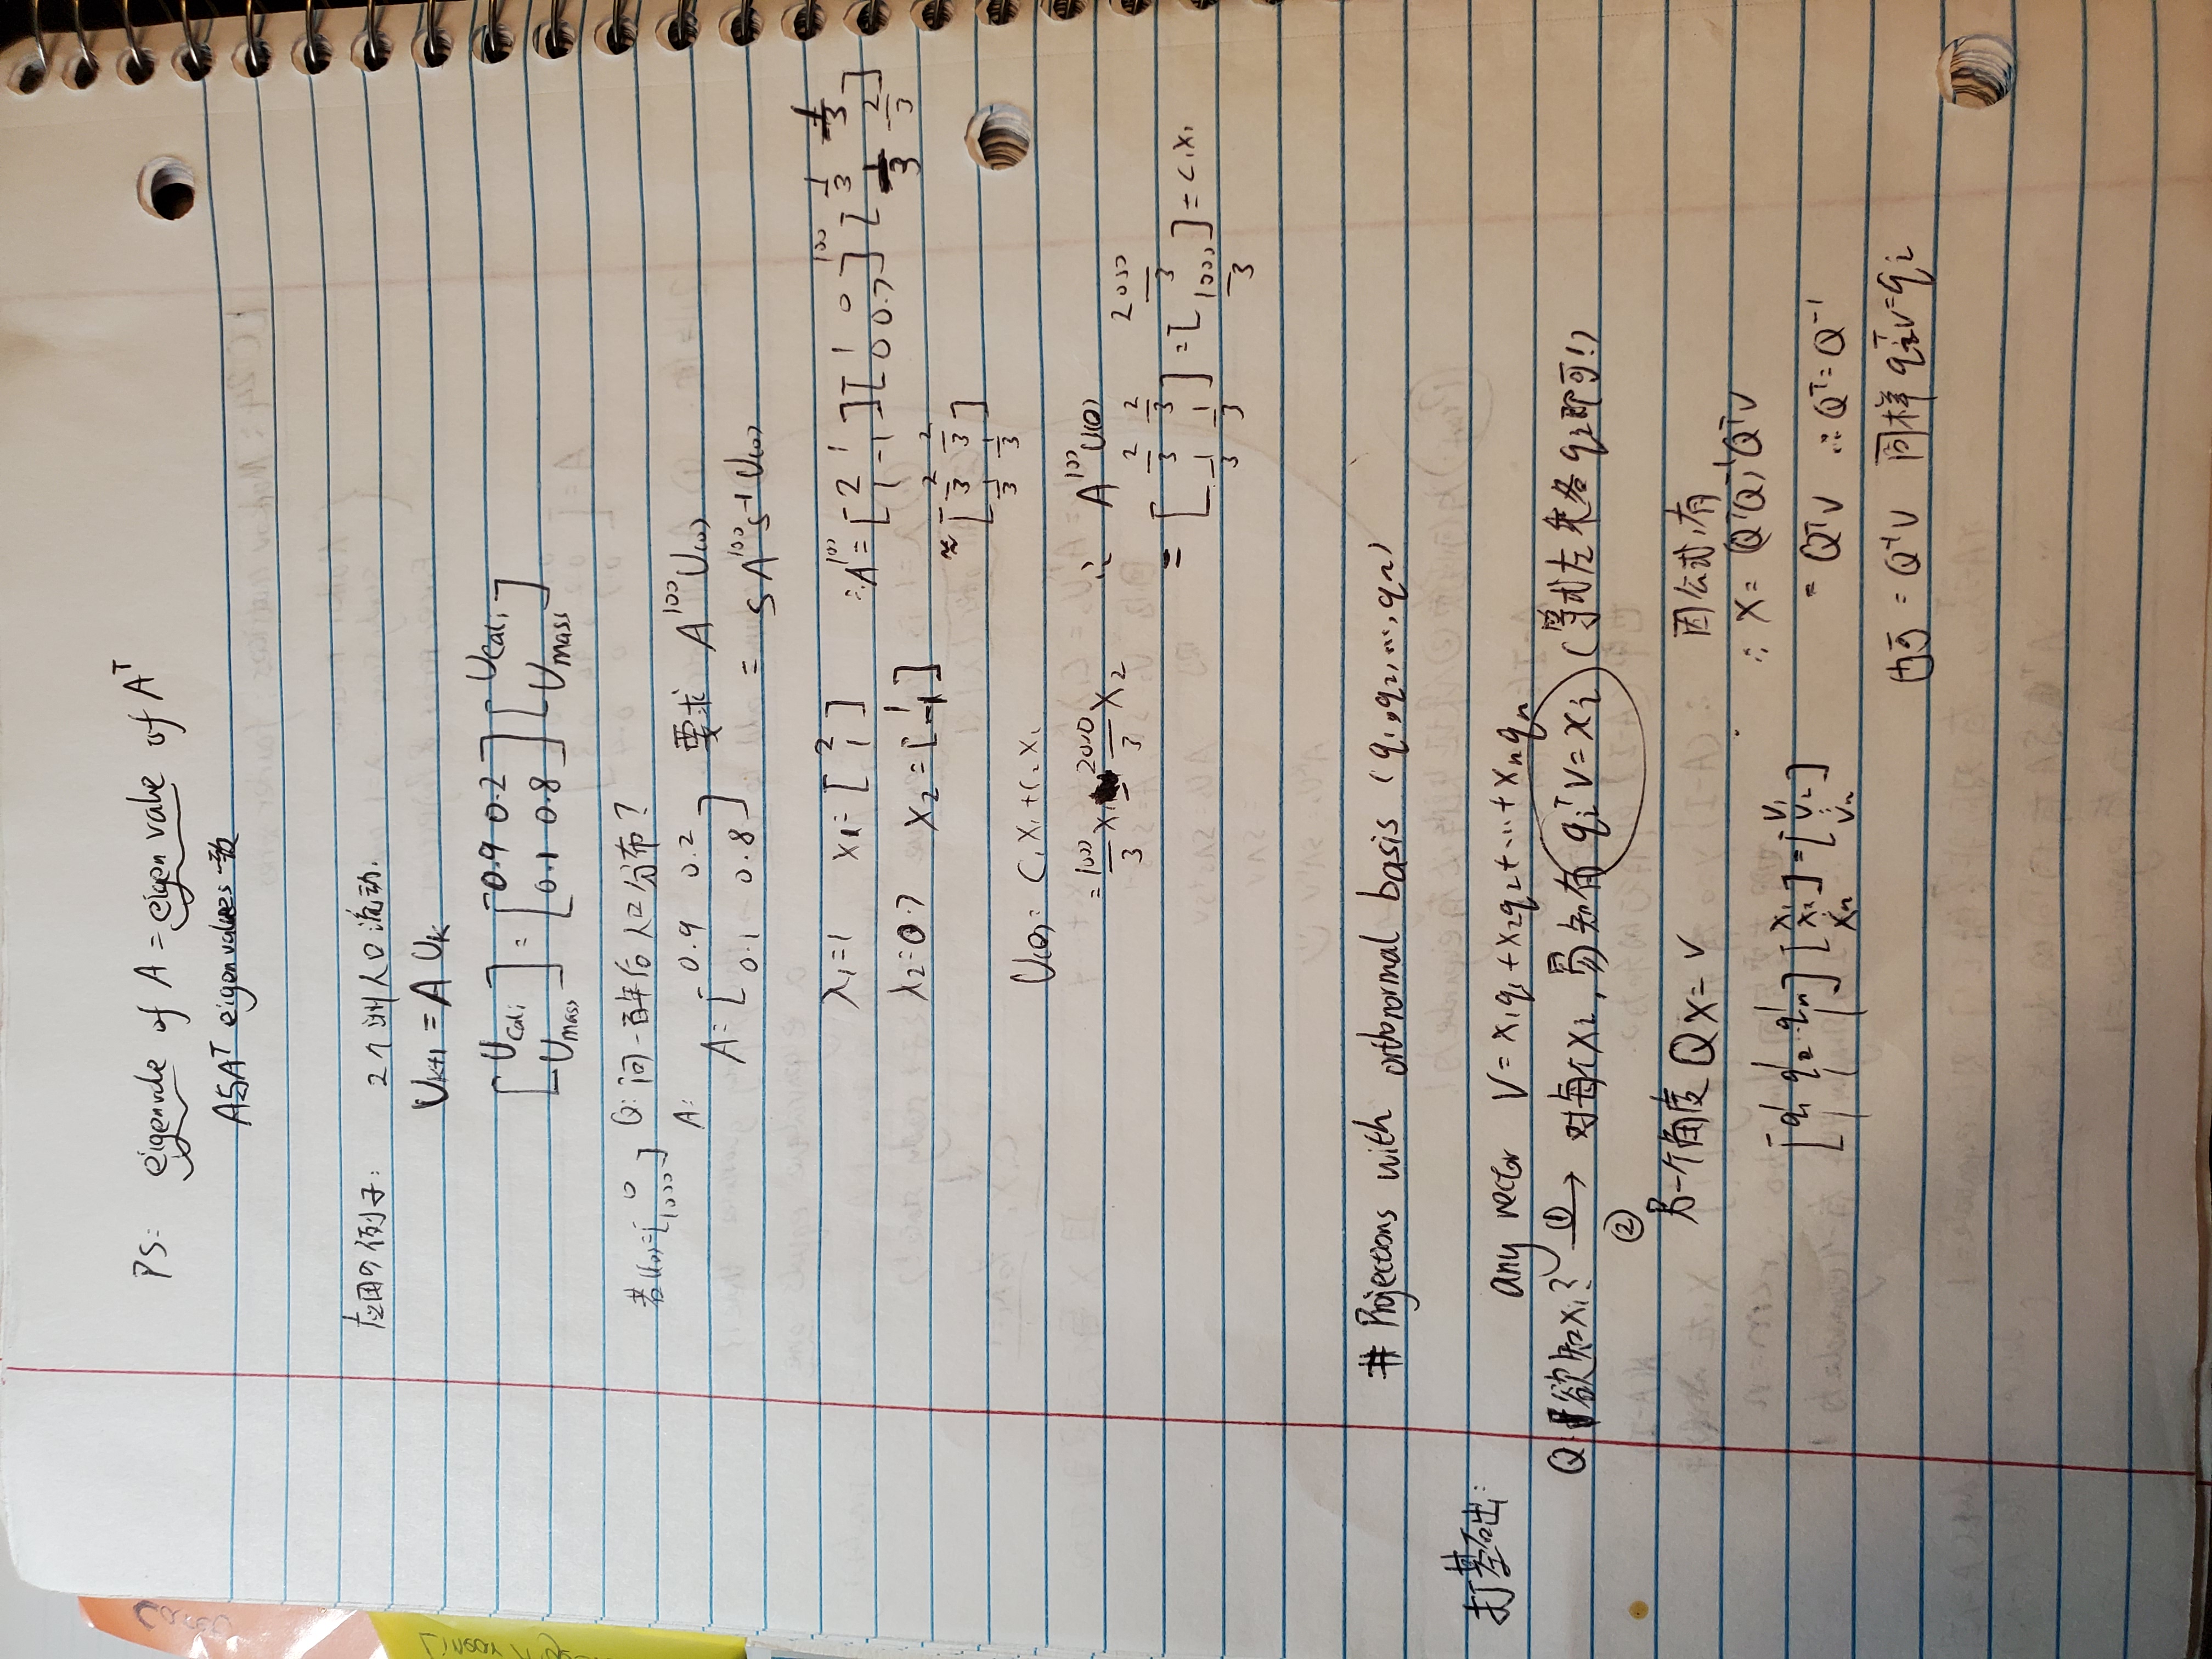 PS: eigenvale of A = eigen value of Aᵀ
A与Aᵀ eigenvalues 一致
应用の例子: 2个洲人口流动.
U_{k+1} = A U_k
[U_{Cali} U_{mass}] = [0.9 0.2; 0.1 0.8] [U_{Cali} U_{mass}]
若U(0)=[0 1000] Q: 问一百年后人口分布?
A: A=[0.9 0.2; 0.1 0.8] 要求 A¹⁰⁰U(0)
= SΛ¹⁰⁰S⁻¹U(0)
λ₁=1 x₁=[2 1] ∴A¹⁰⁰=[2 1; 1 -1][1 0; 0 0.7]¹⁰⁰[1/3 1/3; 1/3 2/3]
λ₂=0.7 x₂=[1 -1] ≈[2/3 2/3; 1/3 1/3]
U(0)= C₁X₁+C₂X₂
= 1000/3 X₁ - 2000/3 X₂ ∴ A¹⁰⁰U(0)
= [2/3 2/3; 1/3 1/3] = [2000/3 1000/3] = C₁X₁
# Projections with orthonormal basis (q₁,q₂,...,qₙ)
打基石出:
any vector V=x₁q₁+x₂q₂+...+xₙqₙ
Q 欲知xᵢ? ①→ 对每个xᵢ, 易知有 qᵢᵀV=xᵢ (等式左乘各qᵢ即可!)
②
另一个角度 Qx=v 因公式,有
∴ X= (QᵀQ)⁻¹Qᵀv
[q₁ q₂ ... qₙ][x₁ x₂ ⋮ xₙ]=[v₁ v₂ ⋮ vₙ] = Qᵀv ∴Qᵀ=Q⁻¹
也可 = Q⁻¹v 同样 qᵢᵀv=qᵢ